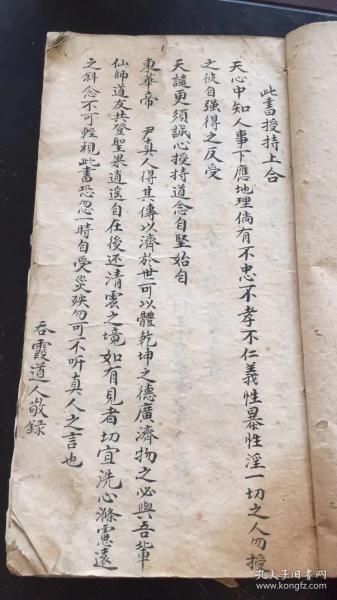 此書授持上合
天心中知人事下應地理倘有不忠不孝不仁義性暴性淫一切之人勿授
之彼自强得之反受
天譴更須誠心授持道念自堅始自
東華帝 尹真人得其傳以濟於世可以體乾坤之德廣濟物之必與吾輩
仙師道友共登聖果逍遥自在後还清雲之境如有見者切宜洗心滌慮遠
之斜念不可輕視此書恐忽一時自受災殃勿可不听真人之言也
吞霞道人敬録
孔夫子旧书网